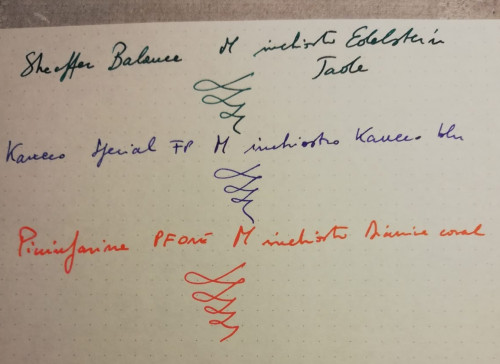 Sheaffer Balance M inchiostro Edelstein
Jade
Kaweco Special FP M inchiostro Kaweco blu
Pininfarina PF ONE M inchiostro Diamine coral